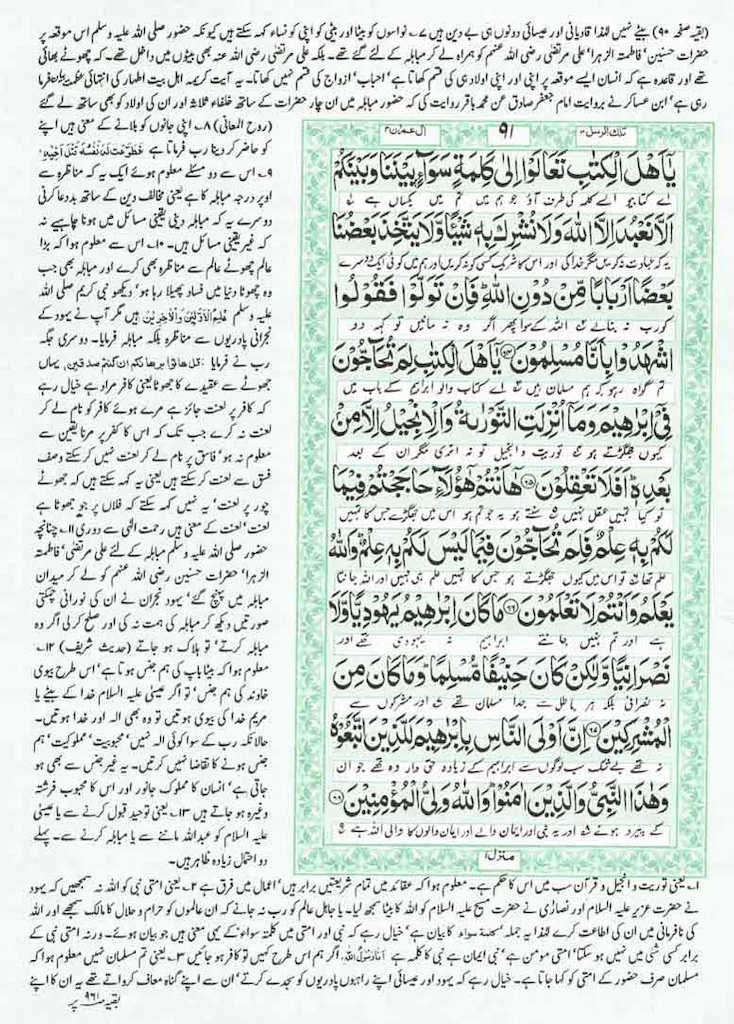 (بقیہ صفحہ ۹۰) بیٹے نہیں لہذا قادیانی اور عیسائی دونوں ہی بے دین ہیں ۷؎ نواسوں کو بیٹا اور بیٹی کو اپنی کو نساء کہہ سکتے ہیں کیونکہ حضور صلی اللہ علیہ وسلم اس موقعہ پر
حضرات حسنین' فاطمتہ الزہرا' علی مرتضیٰ رضی اللہ عنہم کو ہمراہ لے کر مباہلہ کے لئے گئے تھے۔ بلکہ علی مرتضیٰ رضی اللہ عنہ بھی بیٹوں میں داخل تھے۔ کہ چھوٹے بھائی
تھے اور قاعدہ ہے کہ انسان ایسے موقعہ پر اپنی اور اپنی اولاد ہی کی قسم کھاتا ہے' احباب' ازواج کی قسم نہیں کھاتا۔ یہ آیت کریمہ اہل بیت اطہار کی انتہائی عظمت بیان فرما
رہی ہے' ابن عساکر نے بروایت امام جعفر صادق عن محمد باقر روایت کی کہ حضور مباہلہ میں ان چار حضرات کے ساتھ خلفاء ثلاثہ اور ان کی اولاد کو بھی ساتھ لے گئے
تلك الرسل ۳
۹۱
اٰل عمران ۳
يٰٓاَهْلَ الْكِتٰبِ تَعَالَوْا اِلٰى كَلِمَةٍ سَوَآءٍۭ بَيْنَنَا وَبَيْنَكُمْ
اے کتابیو ایسے کلمہ کی طرف آؤ جو ہم میں تم میں یکساں ہے
اَلَّا نَعْبُدَ اِلَّا اللّٰهَ وَلَا نُشْرِكَ بِهٖ شَيْـًٔا وَّلَا يَتَّخِذَ بَعْضُنَا
یہ کہ عبادت نہ کریں مگر خدا کی اور اس کا شریک کسی کو نہ کریں اور ہم میں کوئی ایک دوسرے
بَعْضًا اَرْبَابًا مِّنْ دُوْنِ اللّٰهِ ؕ فَاِنْ تَوَلَّوْا فَقُوْلُوا
کو رب نہ بنالے اللہ کے سوا پھر اگر وہ نہ مانیں تو کہہ دو
اشْهَدُوْا بِاَنَّا مُسْلِمُوْنَ ﴿۶۴﴾ يٰٓاَهْلَ الْكِتٰبِ لِمَ تُحَآجُّوْنَ
تم گواہ رہو کہ ہم مسلمان ہیں اے کتاب والو ابراہیم کے باب میں
فِيْٓ اِبْرٰهِيْمَ وَمَآ اُنْزِلَتِ التَّوْرٰىةُ وَالْاِنْجِيْلُ اِلَّا مِنْۢ
کیوں جھگڑتے ہو توریت و انجیل تو نہ اتری مگر ان کے بعد
بَعْدِهٖ ؕ اَفَلَا تَعْقِلُوْنَ ﴿۶۵﴾ هٰٓاَنْتُمْ هٰٓؤُلَآءِ حَاجَجْتُمْ فِيْمَا
تو کیا تمہیں عقل نہیں سنتے ہو یہ جو تم ہو اس میں جھگڑے جس کا تمہیں
لَكُمْ بِهٖ عِلْمٌ فَلِمَ تُحَآجُّوْنَ فِيْمَا لَيْسَ لَكُمْ بِهٖ عِلْمٌ ؕ وَاللّٰهُ
علم تھا تو اس میں کیوں جھگڑتے ہو جس کا تمہیں علم ہی نہیں اور اللہ جانتا
يَعْلَمُ وَاَنْتُمْ لَا تَعْلَمُوْنَ ﴿۶۶﴾ مَا كَانَ اِبْرٰهِيْمُ يَهُوْدِيًّا وَّلَا
ہے اور تم نہیں جانتے ابراہیم نہ یہودی تھے اور
نَصْرَانِيًّا وَّلٰكِنْ كَانَ حَنِيْفًا مُّسْلِمًا ؕ وَمَا كَانَ مِنَ
نہ نصرانی بلکہ ہر باطل سے جدا مسلمان تھے اور مشرکوں سے
الْمُشْرِكِيْنَ ﴿۶۷﴾ اِنَّ اَوْلَى النَّاسِ بِاِبْرٰهِيْمَ لَلَّذِيْنَ اتَّبَعُوْهُ
نہ تھے بے شک سب لوگوں سے ابراہیم کے زیادہ حق دار وہ تھے جو ان
وَهٰذَا النَّبِيُّ وَالَّذِيْنَ اٰمَنُوْا ؕ وَاللّٰهُ وَلِيُّ الْمُؤْمِنِيْنَ ﴿۶۸﴾
کے پیرو ہوئے اور یہ نبی اور ایمان والے اور ایمان والوں کا والی اللہ ہے
منزل ۱
(روح المعانی) ۸؎ اپنی جانوں کو بلانے کے معنی ہیں اپنے
کو حاضر کر دینا رب فرماتا ہے فَطَوَّعَتْ لَهٗ نَفْسُهٗ قَتْلَ اَخِيْهِ
۹؎ اس سے دو مسئلے معلوم ہوئے ایک یہ کہ مناظرہ سے
اوپر درجہ مباہلہ کا ہے یعنی مخالف دین کے ساتھ بددعا کرنی
دوسرے یہ کہ مباہلہ دینی یقینی مسائل میں ہونا چاہیے نہ
کہ غیر یقینی مسائل میں۔ ۱۰؎ اس سے معلوم ہوا کہ بڑا
عالم چھوٹے عالم سے مناظرہ بھی کرے اور مباہلہ بھی جب
وہ چھوٹا دنیا میں فساد پھیلا رہا ہو' دیکھو نبی کریم صلی اللہ
علیہ وسلم عُلِّمَ الْاَوَّلِيْنَ وَالْاٰخِرِيْنَ ہیں مگر آپ نے یہود کے
نجرانی پادریوں سے مناظرہ بلکہ مباہلہ فرمایا۔ دوسری جگہ
رب نے فرمایا قل هاتوا برهانكم ان كنتم صدقين یہاں
جھوٹے سے عقیدے کا جھوٹا یعنی کافر مراد ہے خیال رہے
کہ کافر پر لعنت جائز ہے مرے ہوئے کافر کو نام لے کر
لعنت نہ کرے جب تک کہ اس کا کفر پر مرنا یقین سے
معلوم نہ ہو' فاسق پر نام لے کر لعنت نہیں کر سکتے وصف
فسق سے لعنت کر سکتے ہیں یعنی یہ کہہ سکتے ہیں کہ جھوٹے
چور پر لعنت' یہ نہیں کہہ سکتے کہ فلاں پر جو جھوٹا ہے
لعنت' لعنت کے معنی ہیں رحمت الٰہی سے دوری ۱۱؎ چنانچہ
حضور صلی اللہ علیہ وسلم مباہلہ کے لئے علی مرتضیٰ' فاطمتہ
الزہرا' حضرات حسنین رضی اللہ عنہم کو لے کر میدان
مباہلہ میں پہنچ گئے' یہود نجران نے ان کی نورانی چمکتی
صورتیں دیکھ کر مباہلہ کی ہمت نہ کی اور صلح کر لی اگر وہ
مباہلہ کرتے' تو ہلاک ہو جاتے (حدیث شریف) ۱۲؎
معلوم ہوا کہ بیٹا باپ کی ہم جنس ہوتا ہے' اس طرح بیوی
خاوند کی ہم جنس' تو اگر عیسیٰ علیہ السلام خدا کے بیٹے یا
مریم خدا کی بیوی ہوتیں تو وہ بھی الٰہ اور خدا ہوتیں۔
حالانکہ رب کے سوا کوئی الٰہ نہیں' محبوبیت' مملوکیت' ہم
جنس ہونے کا تقاضا نہیں کرتیں۔ یہ غیر جنس سے بھی ہو
جاتی ہے' انسان کا مملوک جانور اور اس کا محبوب فرشتہ
وغیرہ ہو جاتے ہیں ۱۳؎ یعنی توحید قبول کرنے سے یا عیسیٰ
علیہ السلام کو عبداللہ ماننے سے یا مباہلہ کرنے سے۔ پہلے
دو احتمال زیادہ ظاہر ہیں۔
۱؎ یعنی توریت و انجیل و قرآن سب میں اس کا حکم ہے۔ معلوم ہوا کہ عقائد میں تمام شریعتیں برابر ہیں' اعمال میں فرق ہے ۲؎ یعنی امتی نبی کو اللہ نہ سمجھیں کہ یہود
نے حضرت عزیر علیہ السلام اور نصاریٰ نے حضرت مسیح علیہ السلام کو اللہ کا بیٹا سمجھ لیا۔ یا جاہل عالم کو رب نہ جانے کہ ان عالموں کو حرام و حلال کا مالک سمجھے اور اللہ
کی نافرمانی میں ان کی اطاعت کرے لہذا یہ جملہ کلمة سواء کا بیان ہے' خیال رہے کہ نبی اور امتی میں کلمتہ سواء کے یہی معنی ہیں جو بیان ہوئے۔ ورنہ امتی نبی کے
برابر کسی شئ میں نہیں ہو سکتا' امتی مومن ہے' نبی ایمان ہے نبی کا کلمہ ہے اَنَا رَسُوْلُ اللّٰهِ اگر ہم اس طرح کہیں تو کافر ہو جائیں ۳؎ یعنی تم مسلمان نہیں معلوم ہوا کہ
مسلمان صرف حضور کے امتی کو کہا جاتا ہے۔ خیال رہے کہ یہود اور عیسائی اپنے راہبوں پادریوں کو سجدے کرتے' ان سے اپنے گناہ معاف کرواتے تھے یہ ان کا اپنے
بقیہ صـ ۹۶۱ پر